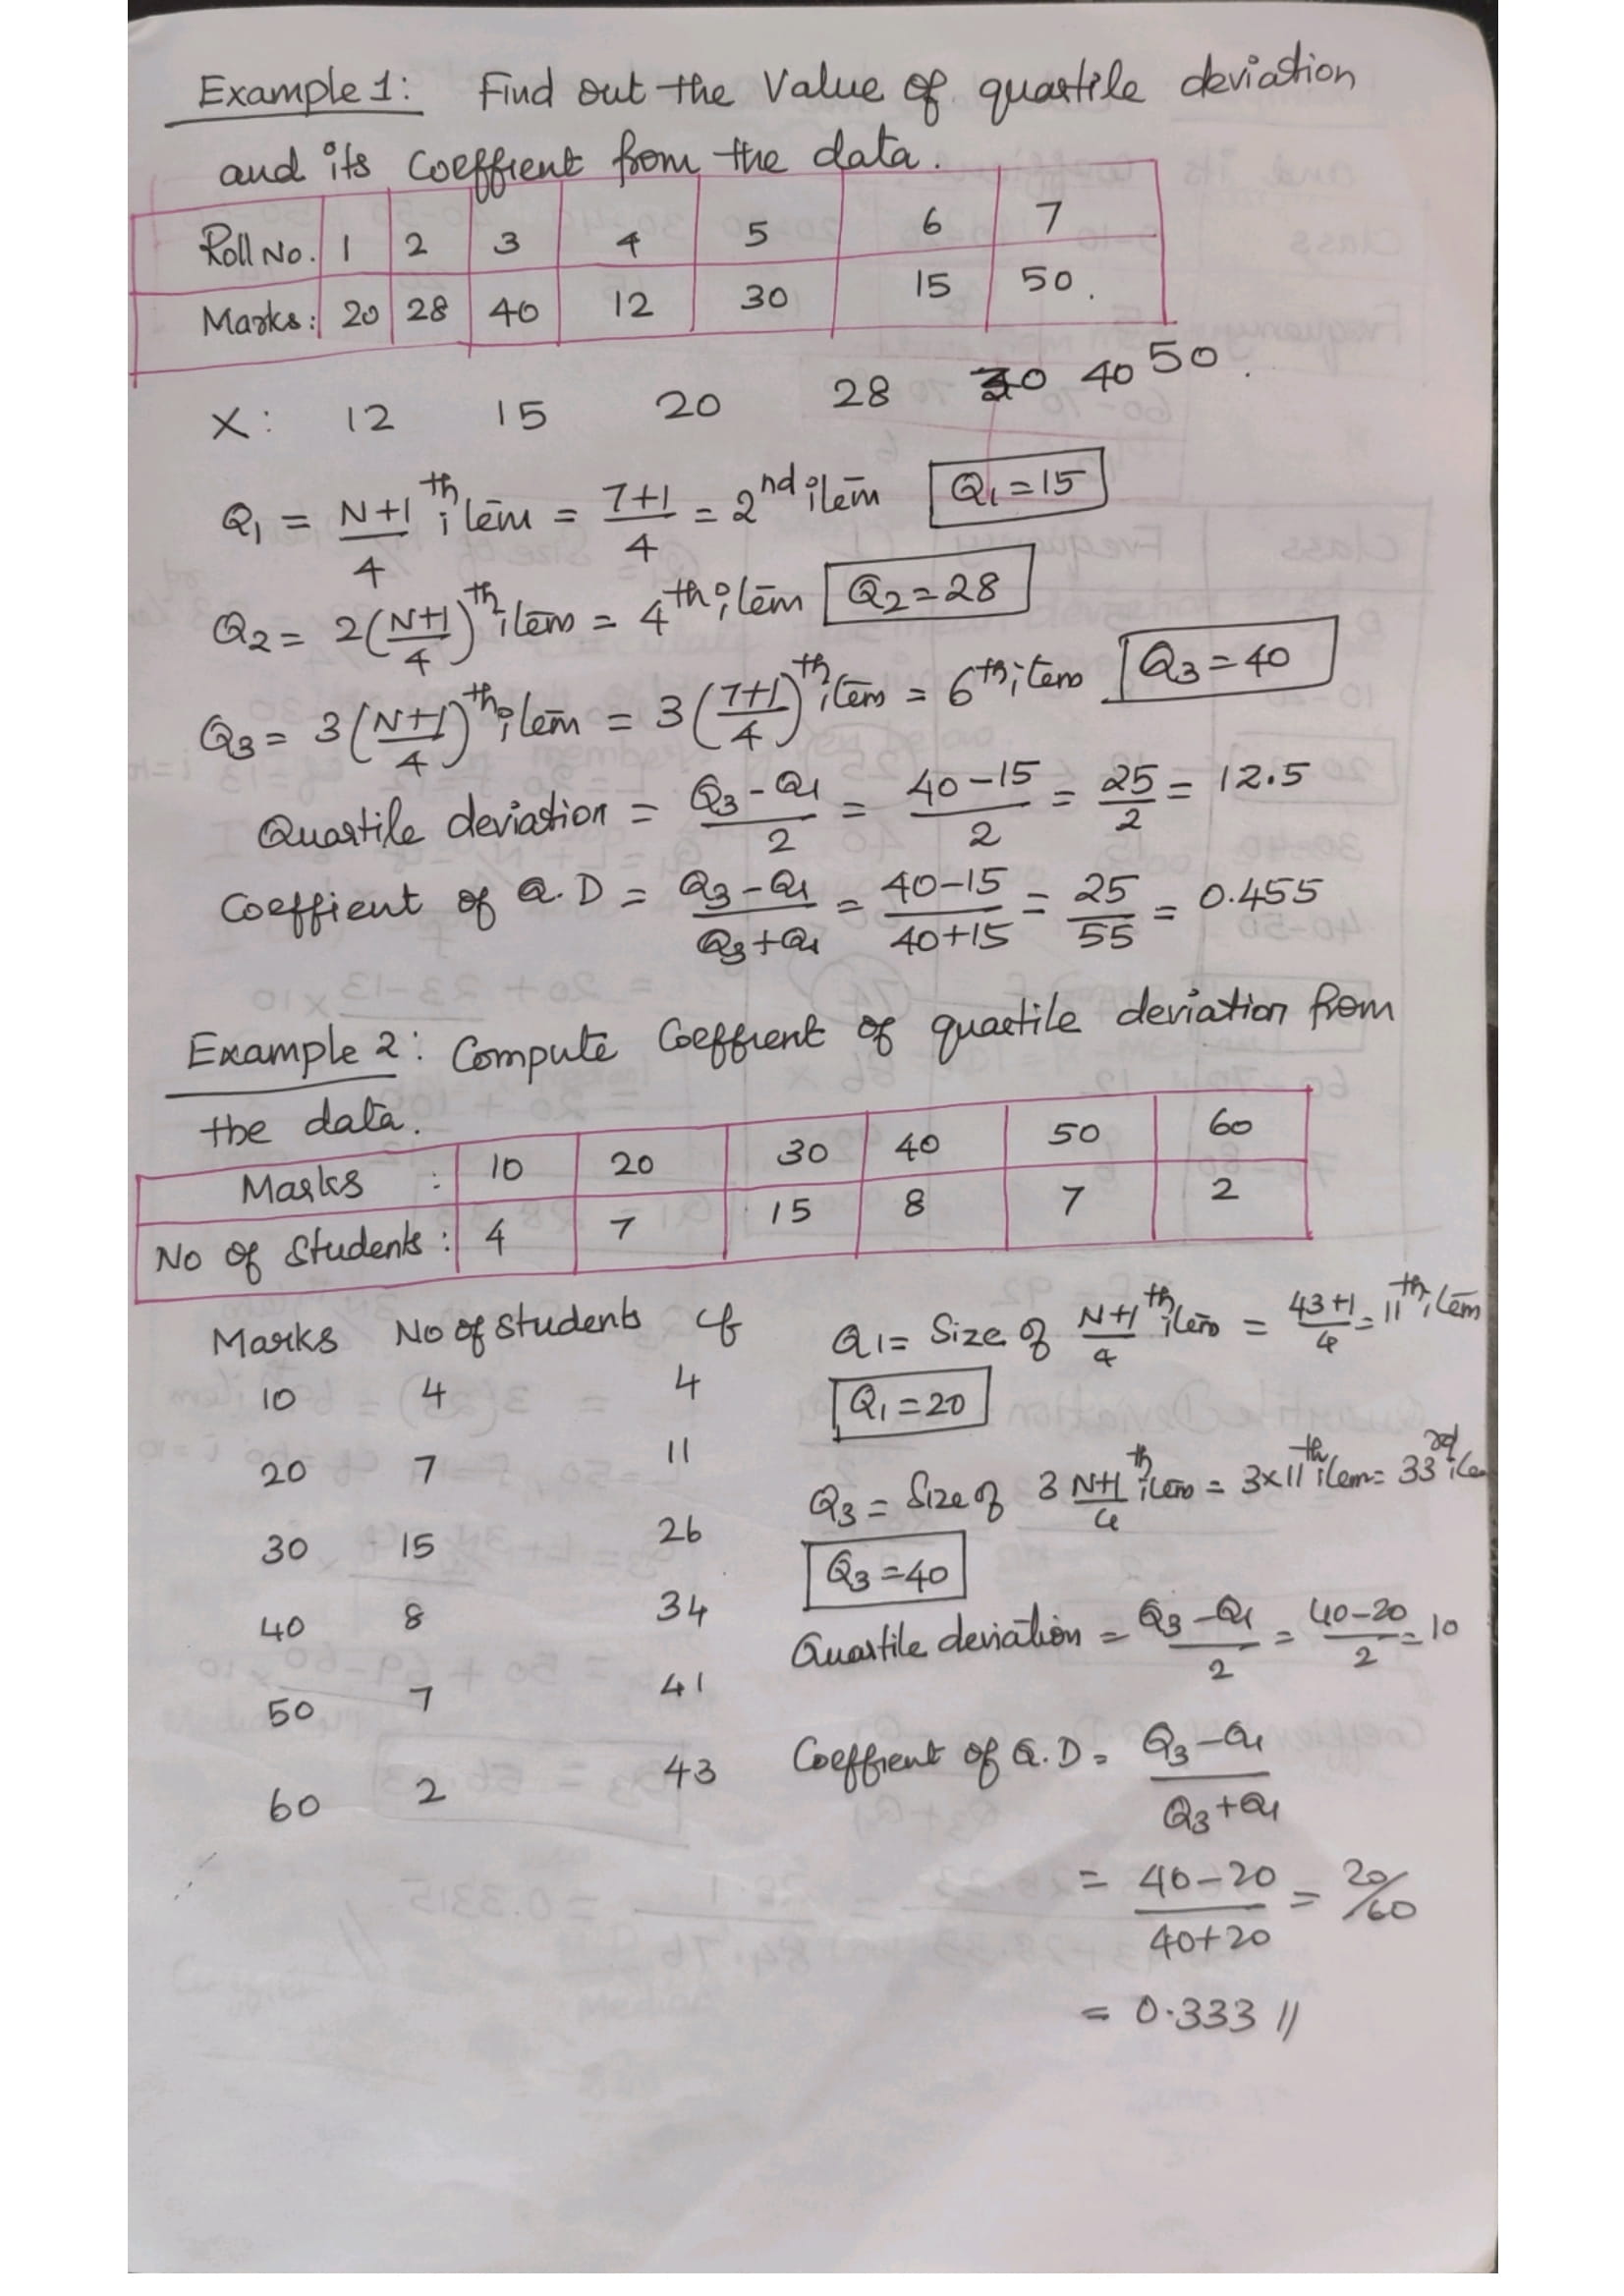 Example 1: Find out the Value of quartile deviation
and its Coeffient from the data.
Roll No. 1 2 3 4 5 6 7
Marks: 20 28 40 12 30 15 50.
X: 12 15 20 28 30 40 50.
Q1 = N+1/4 th item = 7+1/4 = 2nd item Q1 = 15
Q2 = 2(N+1/4)th item = 4th item Q2 = 28
Q3 = 3(N+1/4)th item = 3(7+1/4)th item = 6th item Q3 = 40
Quartile deviation = Q3-Q1/2 = 40-15/2 = 25/2 = 12.5
Coeffient of Q.D = Q3-Q1/Q3+Q1 = 40-15/40+15 = 25/55 = 0.455
Example 2: Compute Coeffient of quartile deviation from
the data.
Marks : 10 20 30 40 50 60
No of Students : 4 7 15 8 7 2
Marks No of students cf
10 4 4
20 7 11
30 15 26
40 8 34
50 7 41
60 2 43
Q1 = Size of N+1/4 th item = 43+1/4 = 11th item
Q1 = 20
Q3 = Size of 3 N+1/4 th item = 3x11th item = 33rd ite
Q3 = 40
Quartile deviation = Q3-Q1/2 = 40-20/2 = 10
Coeffient of Q.D = Q3-Q1/Q3+Q1
= 40-20/40+20 = 20/60
= 0.333 //